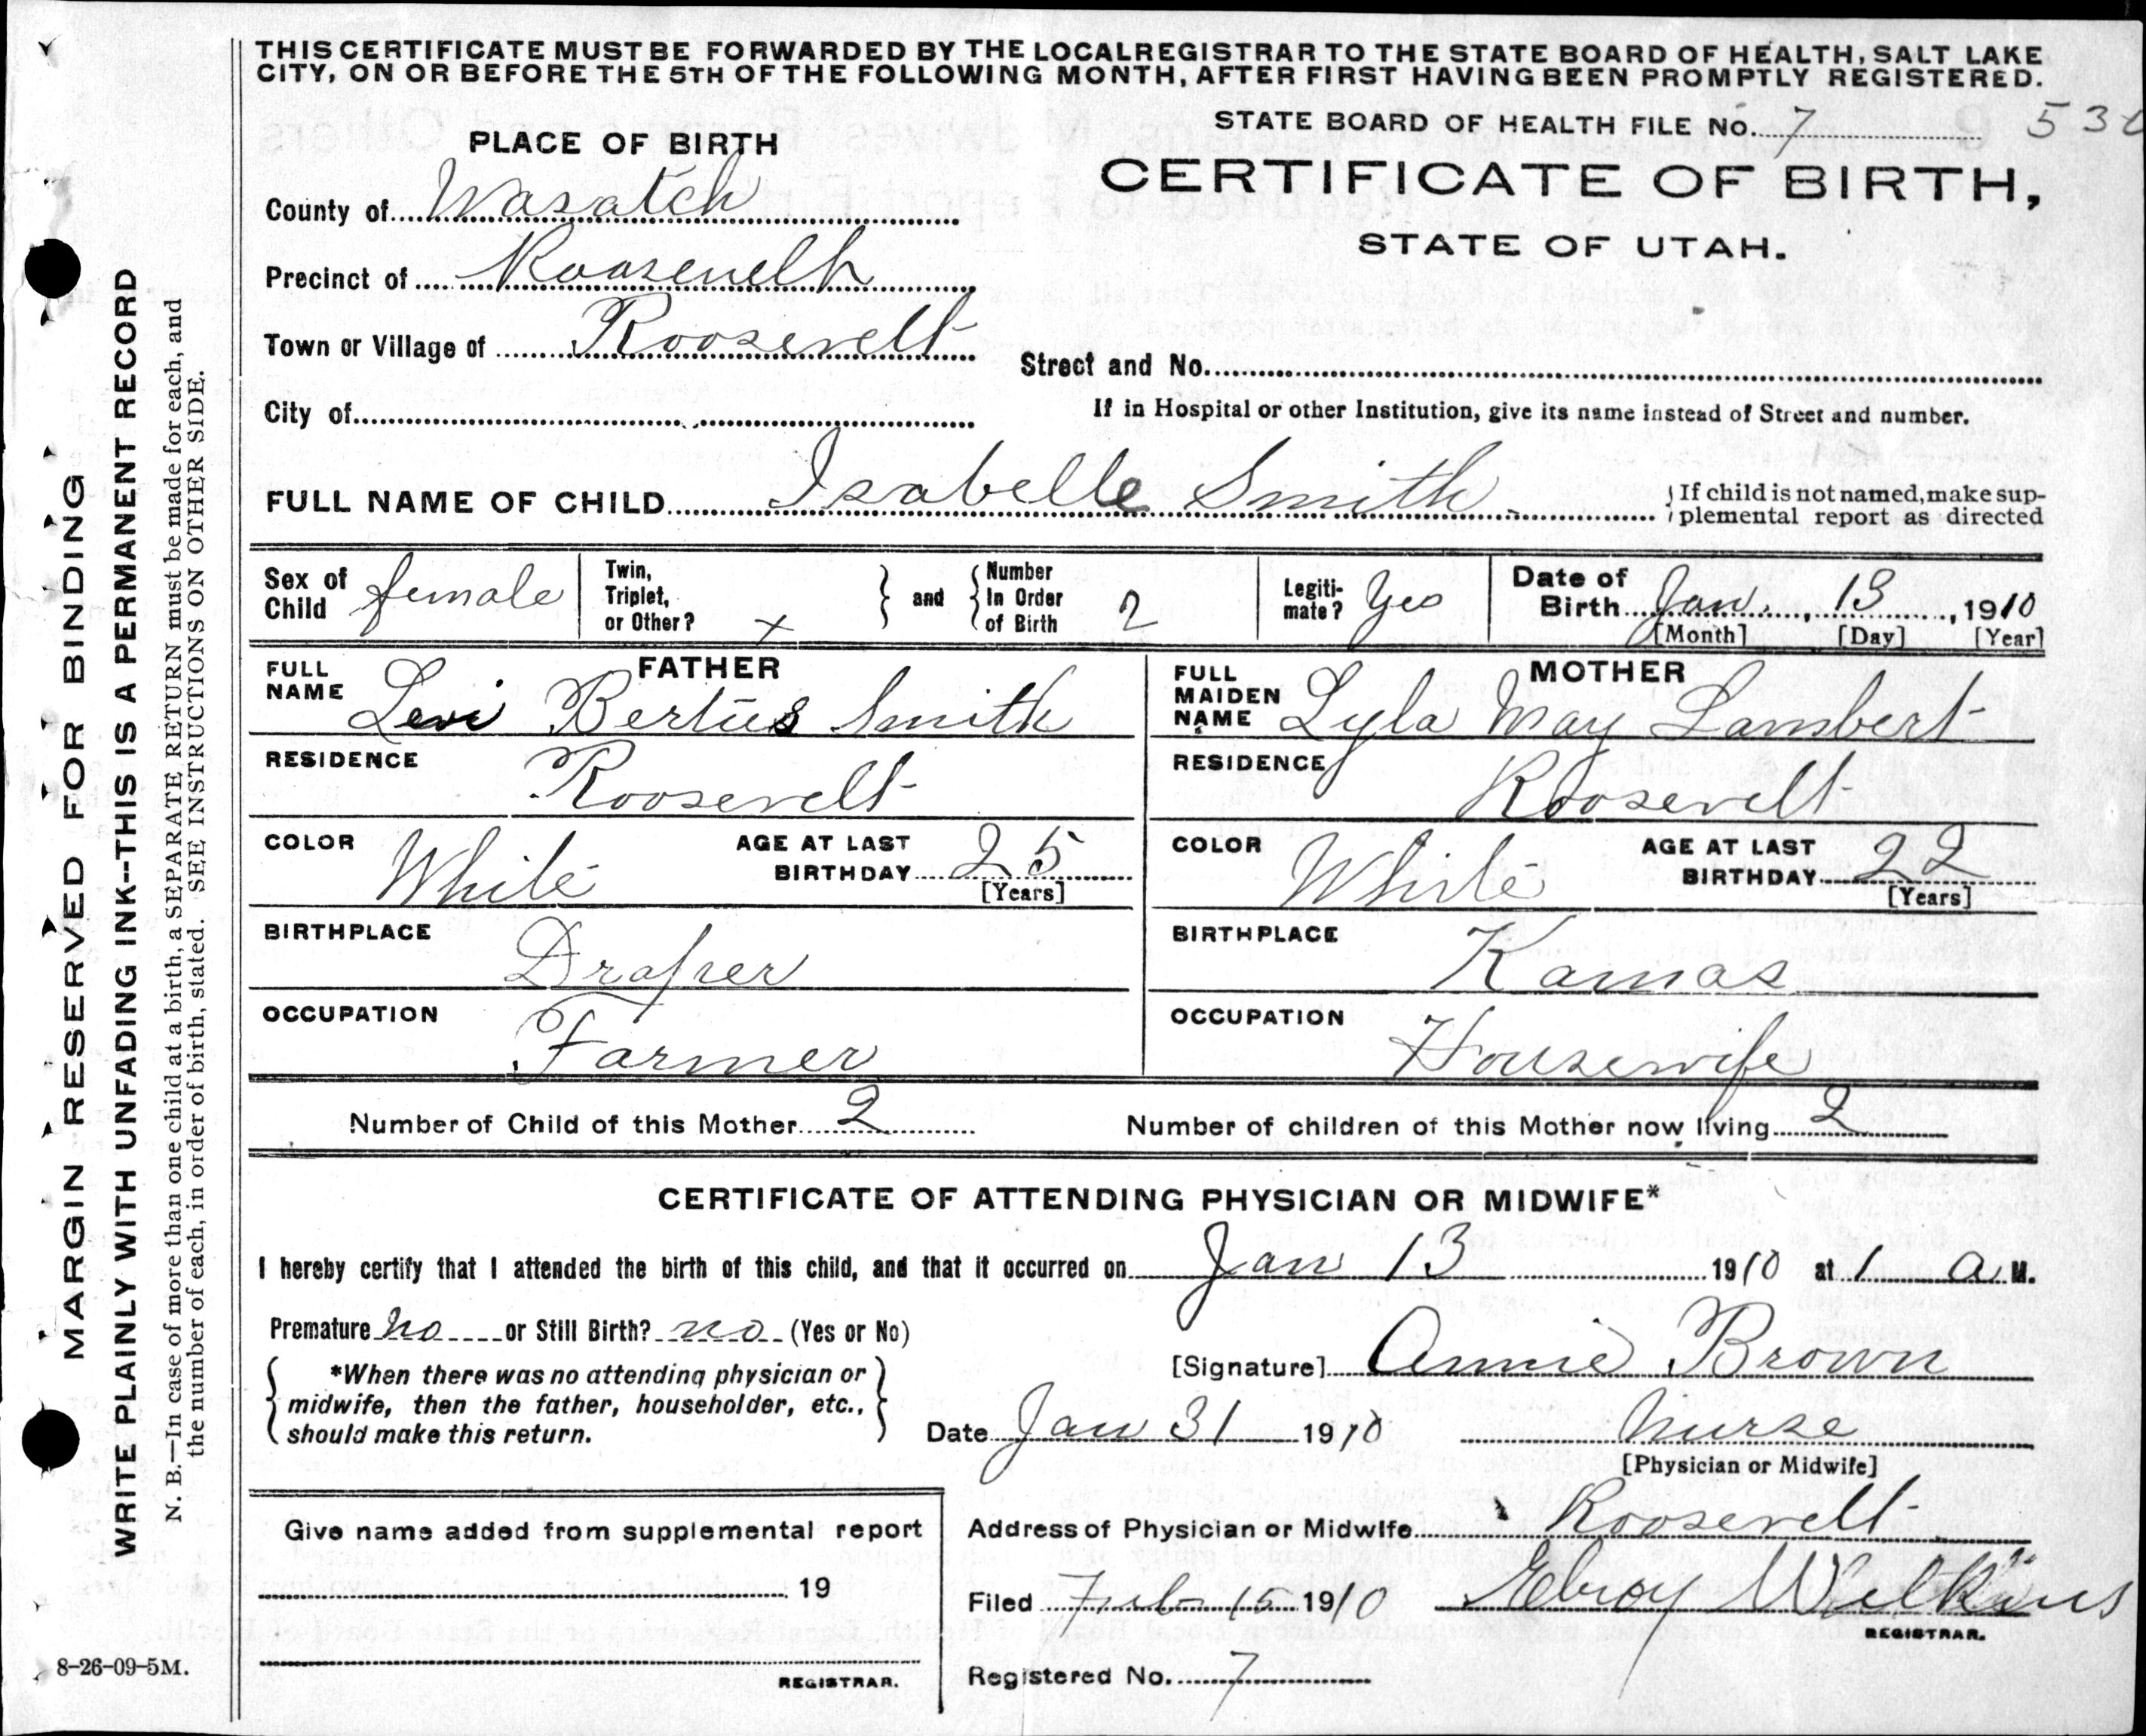 THIS CERTIFICATE MUST BE FORWARDED BY THE LOCAL REGISTRAR TO THE STATE BOARD OF HEALTH, SALT LAKE
CITY, ON OR BEFORE THE 5TH OF THE FOLLOWING MONTH, AFTER FIRST HAVING BEEN PROMPTLY REGISTERED.
STATE BOARD OF HEALTH FILE No. 7 530
PLACE OF BIRTH
CERTIFICATE OF BIRTH,
STATE OF UTAH.
County of Wasatch
Precinct of Roosevelt
Town or Village of Roosevelt
Street and No.
City of
If in Hospital or other Institution, give its name instead of Street and number.
FULL NAME OF CHILD Isabelle Smith
If child is not named, make sup-
plemental report as directed
Sex of Child female
Twin, Triplet, or Other? x and Number In Order of Birth 2
Legiti-mate? Yes
Date of Birth Jan. 13, 1910
[Month] [Day] [Year]
FATHER
FULL NAME Levi Bertus Smith
RESIDENCE Roosevelt
COLOR White AGE AT LAST BIRTHDAY 25
[Years]
BIRTHPLACE Draper
OCCUPATION Farmer
MOTHER
FULL MAIDEN NAME Lyla May Lambert
RESIDENCE Roosevelt
COLOR White AGE AT LAST BIRTHDAY 22
[Years]
BIRTHPLACE Kamas
OCCUPATION Housewife
Number of Child of this Mother 2 Number of children of this Mother now living 2
CERTIFICATE OF ATTENDING PHYSICIAN OR MIDWIFE*
I hereby certify that I attended the birth of this child, and that it occurred on Jan 13 1910 at 1 a M.
Premature no or Still Birth? no (Yes or No)
*When there was no attending physician or
midwife, then the father, householder, etc.,
should make this return.
[Signature] Annie Brown
Date Jan 31 1910 Nurse
[Physician or Midwife]
Give name added from supplemental report
19
REGISTRAR.
Address of Physician or Midwife Roosevelt
Filed Feb 15 1910 Elroy Wilkins
REGISTRAR.
Registered No. 7
8-26-09-5M.
MARGIN RESERVED FOR BINDING
WRITE PLAINLY WITH UNFADING INK--THIS IS A PERMANENT RECORD
N. B.—In case of more than one child at a birth, a SEPARATE RETURN must be made for each, and
the number of each, in order of birth, stated. SEE INSTRUCTIONS ON OTHER SIDE.